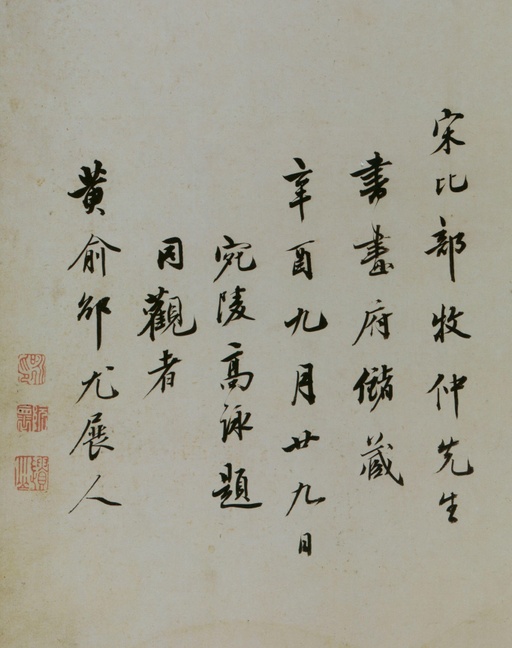 宋比部牧仲先生
書畫府儲藏
辛酉九月廿九日
宛陵高詠題
同觀者
黃俞邰尤展人